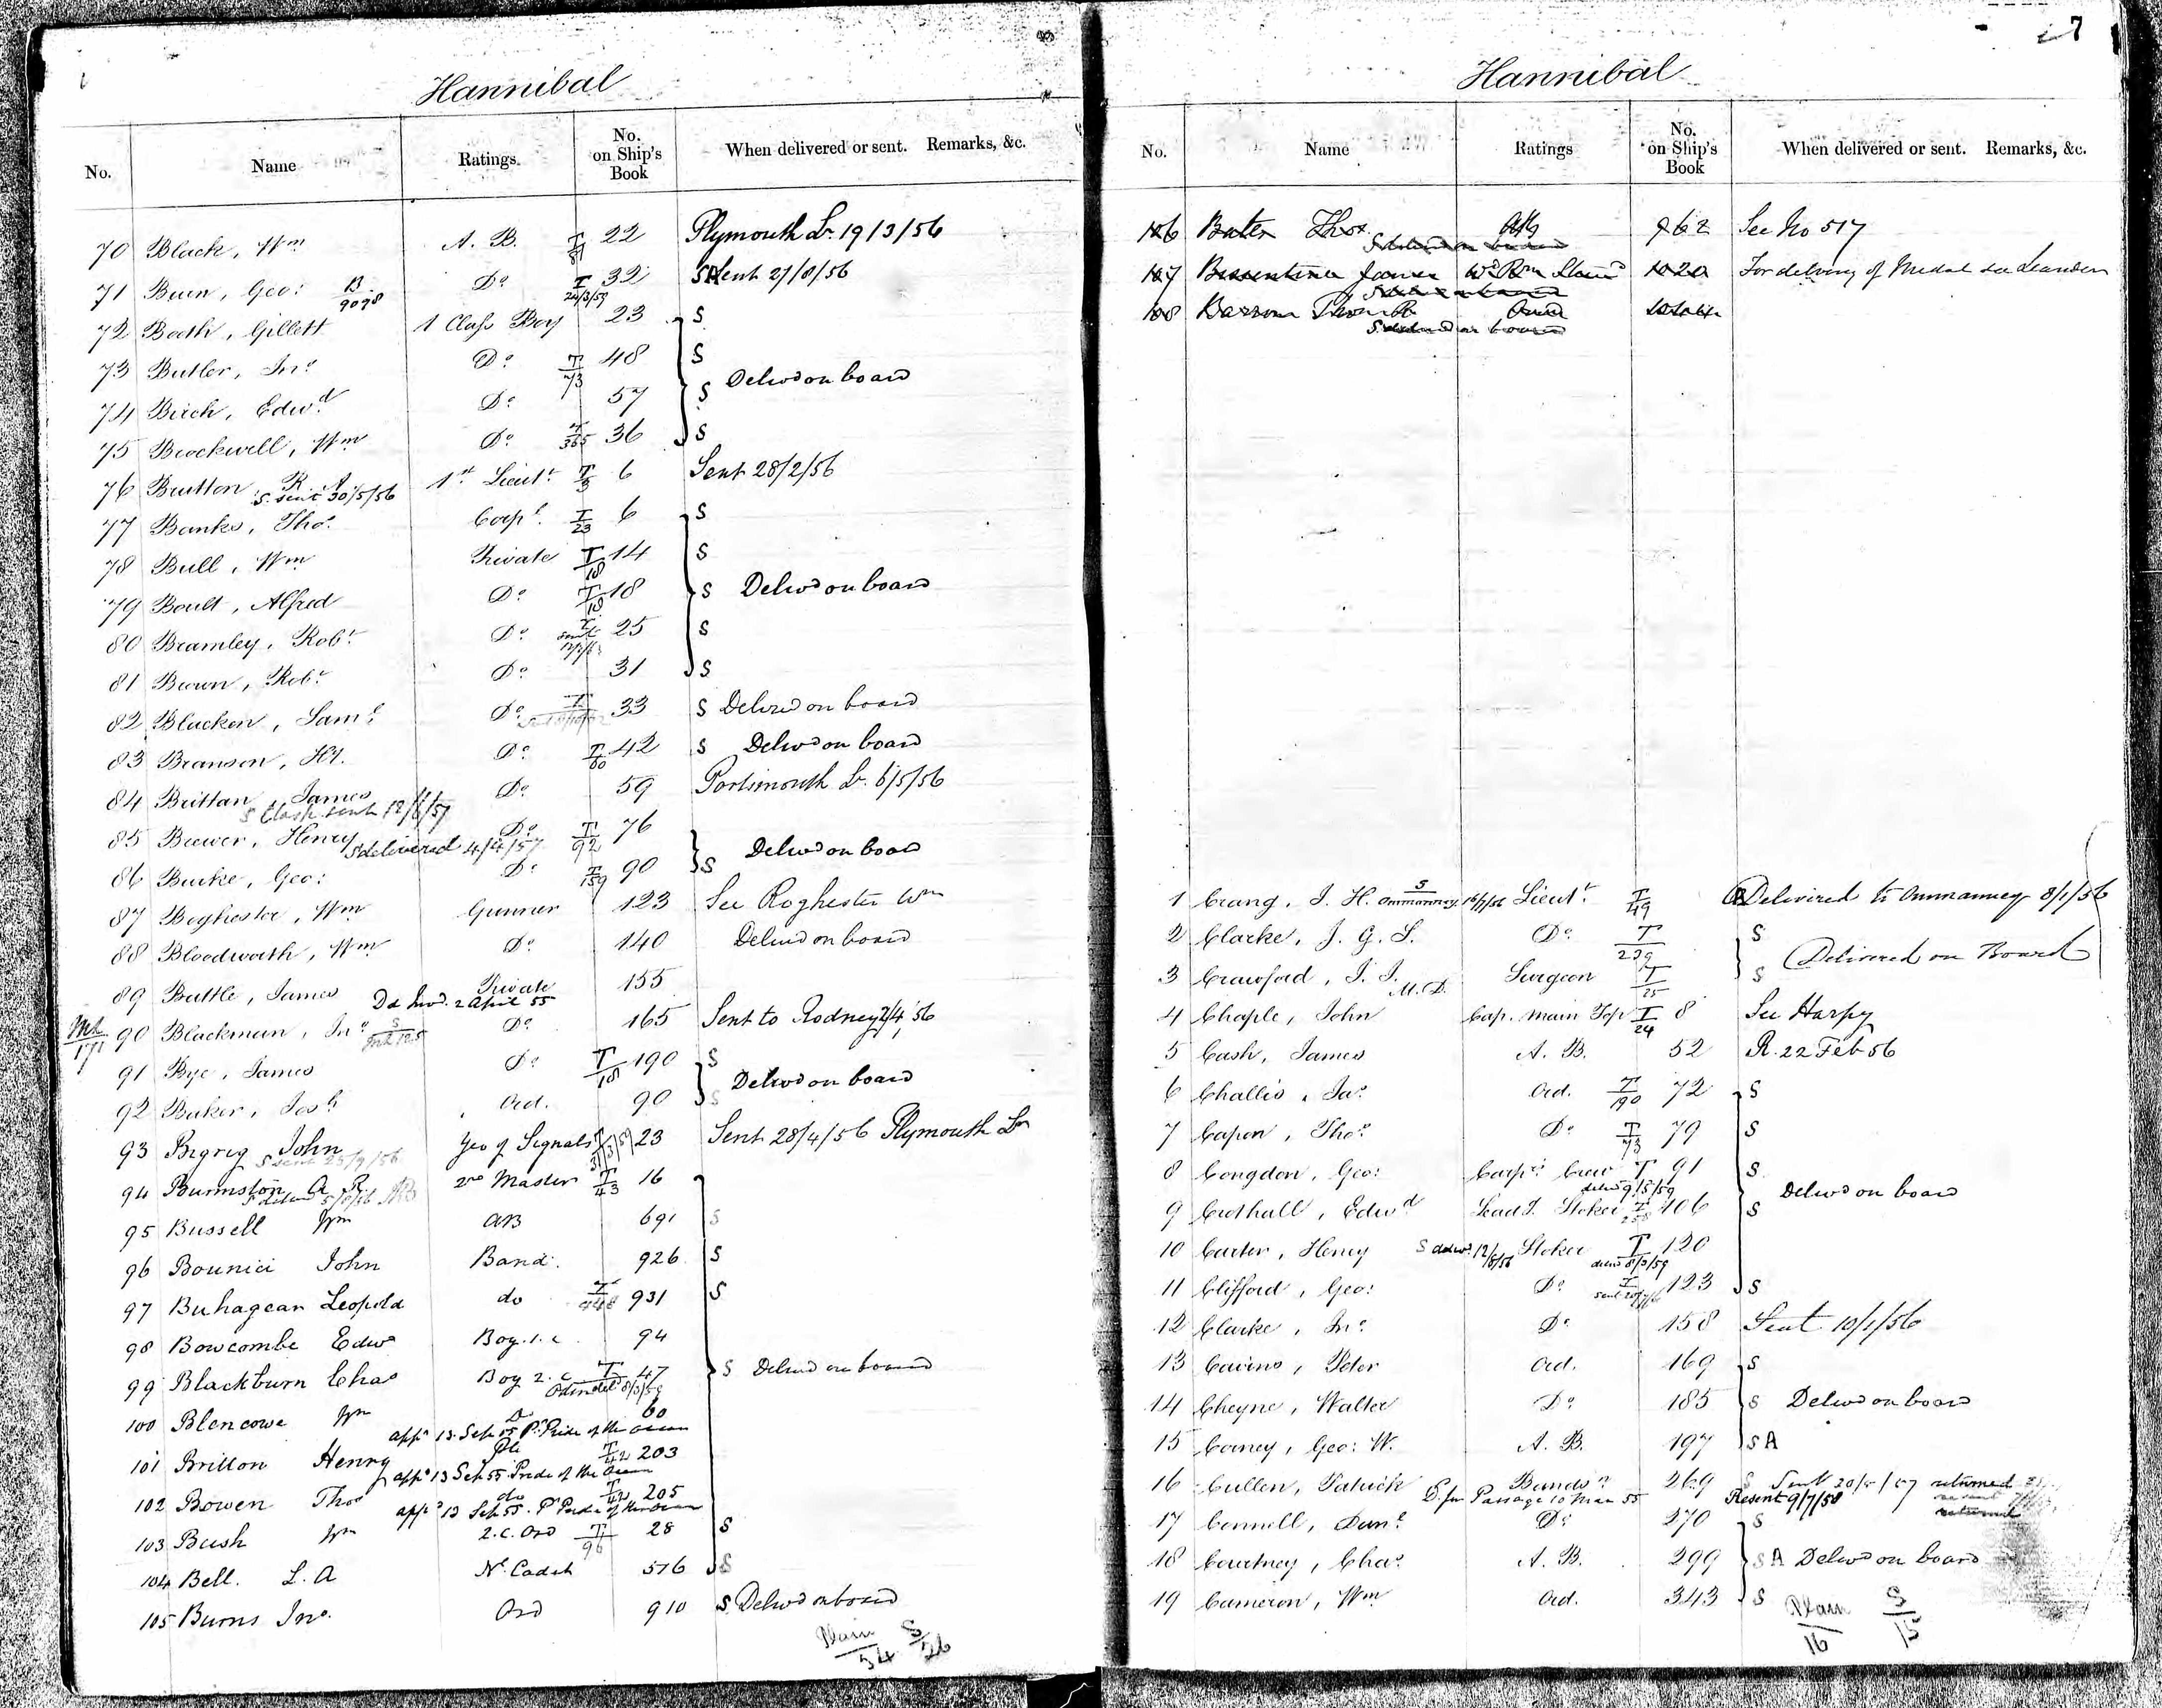 Hannibal
No. Name Ratings No. on Ship's Book When delivered or sent. Remarks, &c.
70 Black, Wm A. B. 22 Plymouth Dr. 19/3/56
71 Geo: B 9098 Do 24/3/59 32 Sent 27/8/56
72 Booth, Gillett 1 Class Boy 23 S
73 Butler, Jno Do T/73 48 S
Delivd on board
74 Birch, Edwd Do 57 S
75 Brockwell, Wm Do T/365 36 S
76 R. A. 1st Lieut. 6 Sent 28/2/56
S. sent 30/5/56
77 Banks, Thos. Corpl. T/23 6 S
78 Bull, Wm Private T/18 14 S
79 Boult, Alfred Do T/18 18 S Delivd on board
80 Bramley, Robt. Do 25 S
81 Brown, Robt. Do 31 S
82 Blacken, Saml. Do 33 S Delivd on board
83 Branson, Hy. Do T/60 42 S Delivd on board
84 Brittan, James Do 59 Portsmouth Dr. 6/5/56
S Clasp sent
85 Brewer, Henry Do T/92 76
S delivered 4/4/57
Delivd on board
86 Burke, Geo: Do T/159 90 S
87 Boghester, Wm Gunner 123 See Roghester Wm
88 Bloodworth, Wm Do 140 Delivd on board
89 Buttle, James Private 155
2 April 55
90 Blackman, Jno Do 165 Sent to Rodney 2/4/56
91 Bye, James Do T/18 190 S
Delivd on board
92 Baker, Josh Ord. 90 S
93 Bigrig John Yeo of Signals 23 Sent 28/4/56 Plymouth Dr
94 Burmston A. R. 2nd Master T/43 16
95 Bussell Wm AB 691 S
96 Bounici John Band. 926 S
97 Buhagear Leopold do T/448 931 S
98 Bowcombe Edwd Boy. 1. c. 94
99 Blackburn Chas Boy 2. c. T 47 S Delivd on board
100 Blencowe Wm D 60
appd 13 Sep 55 Pr Pride of the Ocean
101 Britton Henry Pte T/42 203
appd 13 Sep 55 Pride of the Ocean
102 Bowen Thos do T/42 205
appd 13 Sep 55. Pr Pride of the Ocean
103 Bush Wm 2. C. Ord T/96 28 S
104 Bell. L. A Nl. Cadet 576 S
105 Burns Jno. Ord 910 S Delivd on board
Plain 54 S/26
7
Hannibal
No. Name Ratings No. on Ship's Book When delivered or sent. Remarks, &c.
106 Bater Thos 962 See No 517
S on board
107 James 1020 For delivery of Medal see Leander
108 Thos R
S on board
1 Crang, J. H. S Ommanney Lieut. T/49 Delivered to Ommanney 8/1/56
2 Clarke, J. G. S. Do T/239 S
Delivered on Board
3 Crawford, J. J. M. D. Surgeon T/25 S
4 Chaple, John Cap. Main Top T/24 8 See Harpy
5 Cash, James A. B. 52 R. 22 Feb 56
6 Challis, Jas Ord. T/190 72 S
7 Capon, Thos. Do T/73 79 S
8 Congdon, Geo: Carprs Crew T 91 S
delivd 9/5/59
Delivd on board
9 Crothall, Edwd Leadg. Stoker 106 S
10 Carter, Henry S delivd 12/5/56 Stoker T 120
11 Clifford, Geo: Do 123 S
12 Clarke, Jno. Do 158 Sent 10/1/56
13 Cairns, Peter Ord. 169 S
14 Cheyne, Walter Do 185 S Delivd on board
15 Corney, Geo: W. A. B. 197 S A
16 Cullen, Patrick Bandsn 269 S Sent returned
Passage 10 Mar 55 Resent 9/7/58
17 Connell, Danl. Do 270 S
returned
18 Courtney, Chas. A. B. 299 S A Delivd on board
19 Cameron, Wm Ord. 343 S
Plain 16 S/15